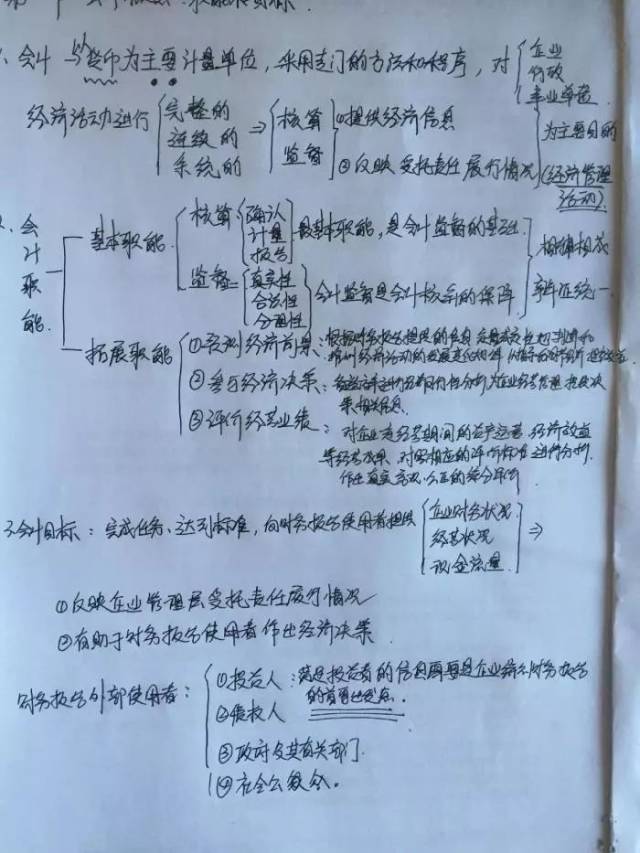 1、会计 以货币为主要计量单位，采用专门的方法和程序，对 { 企业
行政
事业单位
经济活动进行 { 完整的 连续的 系统的 ⇒ { 核算 监督 } ①提供经济信息
②反映受托责任履行情况
为主要目的
(经济管理
活动)
2、会计职能
基本职能 { 核算 { 确认 计量 报告 } 最基本职能，是会计监督的基础.
监督 = { 真实性 合法性 合理性 } 会计监督是会计核算的保障
相辅相成
辩证统一
拓展职能 { ①预测经济前景：根据财务报告提供的信息
②参与经济决策：
③评价经营业绩：对企业 经营期间的资产运营、经济效益
等经营成果，对照相应的评价标准进行分析，
作出真实、客观、公正的综合评价
3、会计目标：完成任务、达到标准，向财务报告使用者提供 { 企业财务状况 经营状况 现金流量 ⇒
①反映企业管理层受托责任履行情况
②有助于财务报告使用者作出经济决策
财务报告外部使用者：{ ①投资人：满足投资者的信息需要是企业 财务报告
的首要出发点.
②债权人
③政府及其有关部门.
④社会公众.